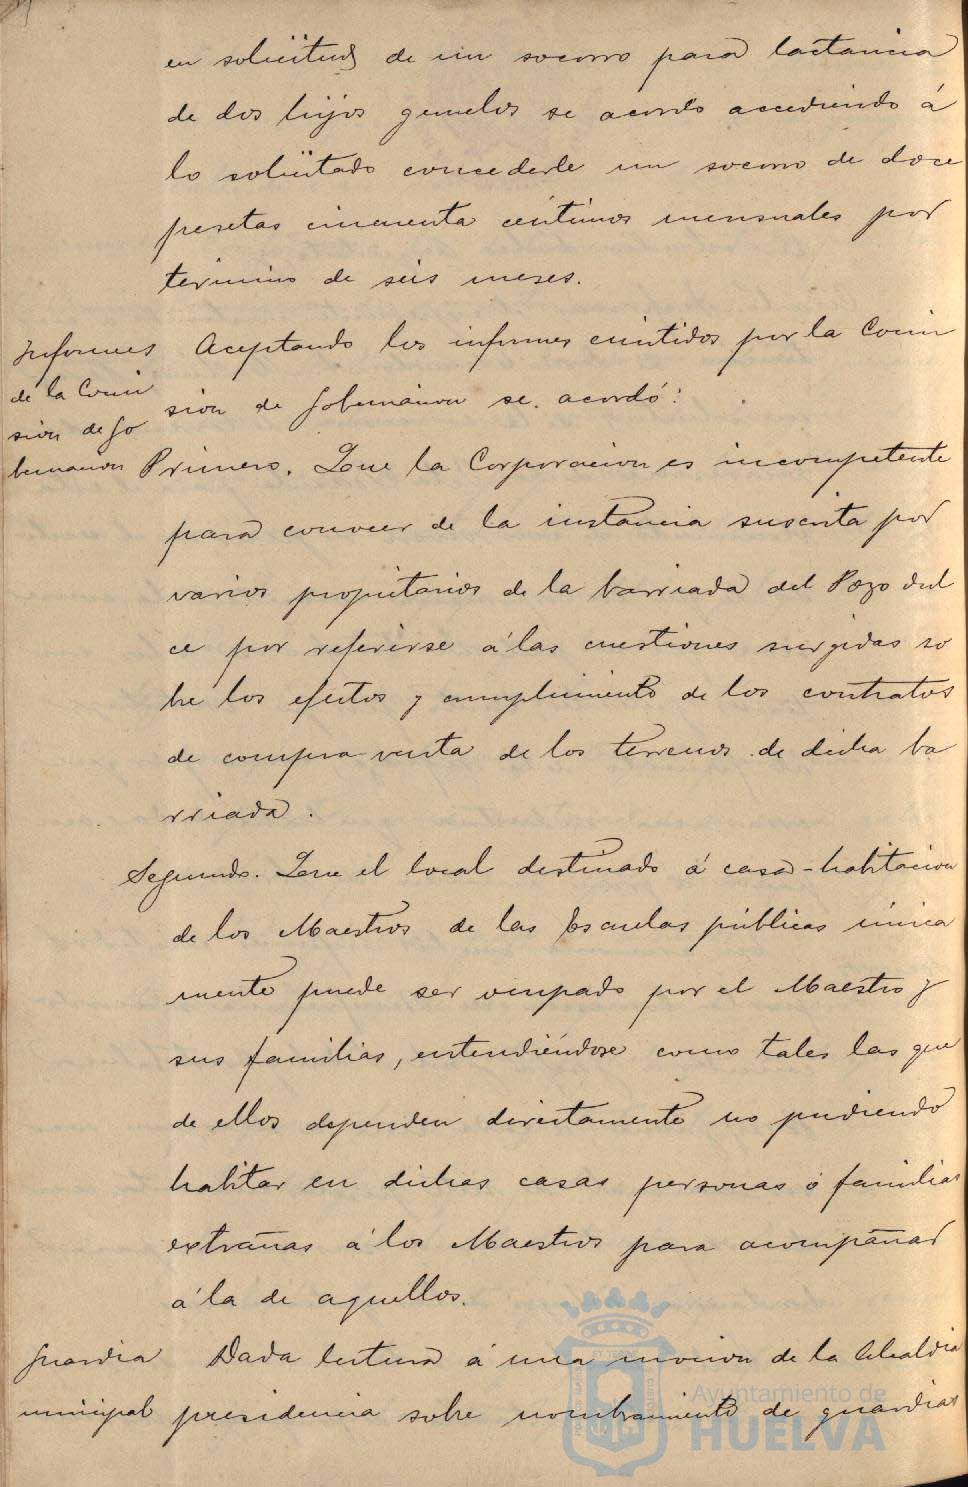 en solicitud de un socorro para lactancia
de dos hijos gemelos se acordo accediendo á
lo solicitado concederle un socorro de doce
pesetas cincuenta céntimos mensuales por
término de seis meses.
Informes
de la Comi
sion de Go
bernacion
Aceptando los informes emitidos por la Comi
sion de Gobernacion se acordó:
Primero. Que la Corporacion es incompetente
para conocer de la instancia suscrita por
varios propietarios de la barriada del Pozo dul
ce por referirse á las cuestiones surgidas so
bre los efectos y cumplimiento de los contratos
de compra-venta de los terrenos de dicha ba
rriada.
Segundo. Que el local destinado á casa-habitacion
de los Maestros de las Escuelas públicas única
mente puede ser ocupado por el Maestro y
sus familias, entendiéndose como tales las que
de ellos dependen directamente no pudiendo
habitar en dichas casas personas ó familias
extrañas á los Maestros para acompañar
á la de aquellos.
Guardia
municipal
Dada lectura á una mocion de la Alcaldia
presidencia sobre nombramiento de guardias
Ayuntamiento de
HUELVA